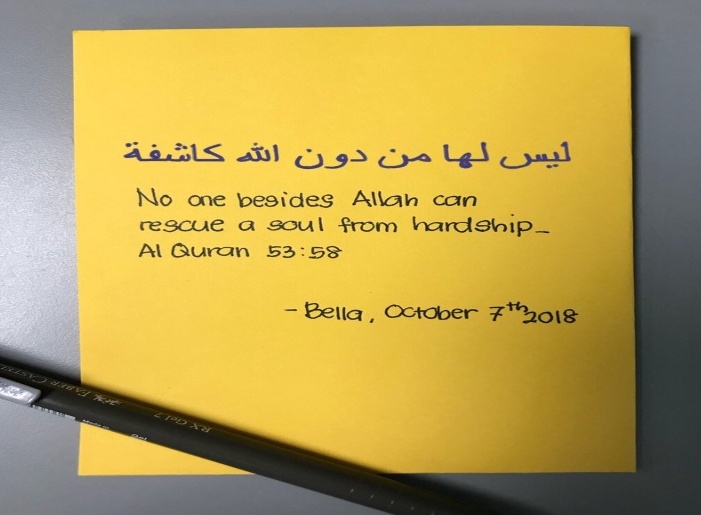 ليس لها من دون الله كاشفة
No one besides Allah can
rescue a soul from hardship_
Al Quran 53:58
- Bella, October 7th 2018
FABER CASTELL
RX Gel 7